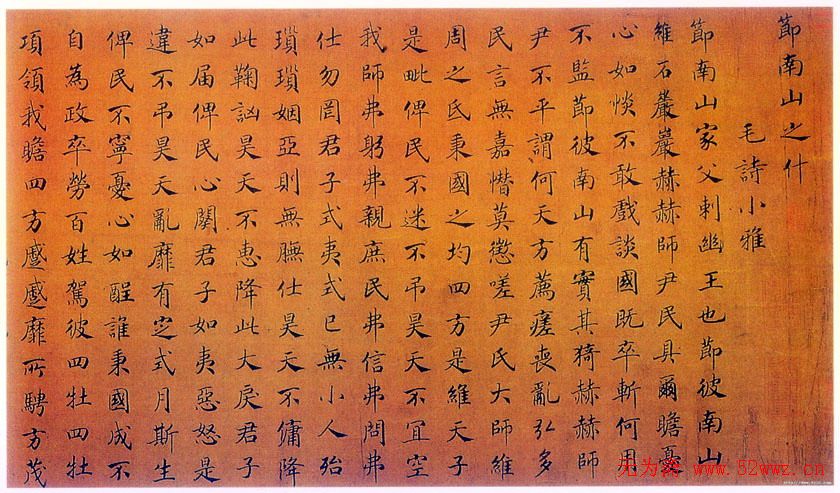 節南山之什
毛詩小雅
節南山家父刺幽王也節彼南山
維石巖巖赫赫師尹民具爾瞻憂
心如惔不敢戲談國既卒斬何用
不監節彼南山有實其猗赫赫師
尹不平謂何天方薦瘥喪亂弘多
民言無嘉憯莫懲嗟尹氏大師維
周之氐秉國之均四方是維天子
是毗俾民不迷不吊昊天不宜空
我師弗躬弗親庶民弗信弗問弗
仕勿罔君子式夷式已無小人殆
瑣瑣姻亞則無膴仕昊天不傭降
此鞠訩昊天不惠降此大戾君子
如届俾民心闋君子如夷惡怒是
違不吊昊天亂靡有定式月斯生
俾民不寧憂心如酲誰秉國成不
自為政卒勞百姓駕彼四牡四牡
項領我瞻四方蹙蹙靡所騁方茂
无为斋 www.52wwz.cn